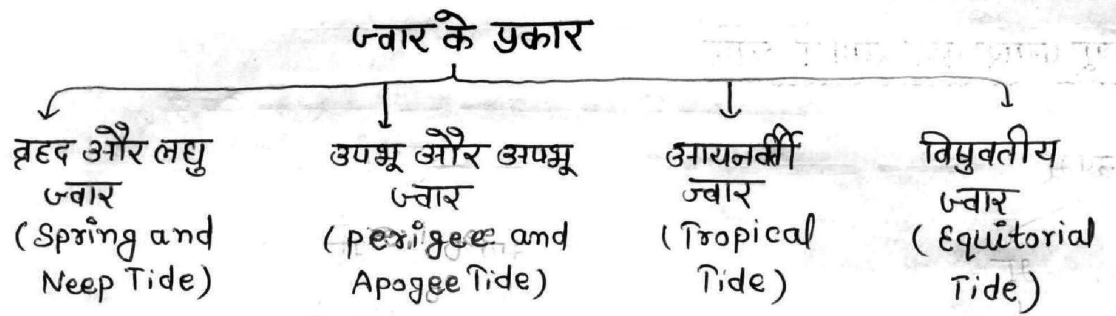 ज्वार के प्रकार
व्रहद और लघु
ज्वार
(Spring and
Neep Tide)
उपभू और अपभू
ज्वार
(perigee and
Apogee Tide)
आयनवर्ती
ज्वार
(Tropical
Tide)
विषुवतीय
ज्वार
(Equitorial
Tide)